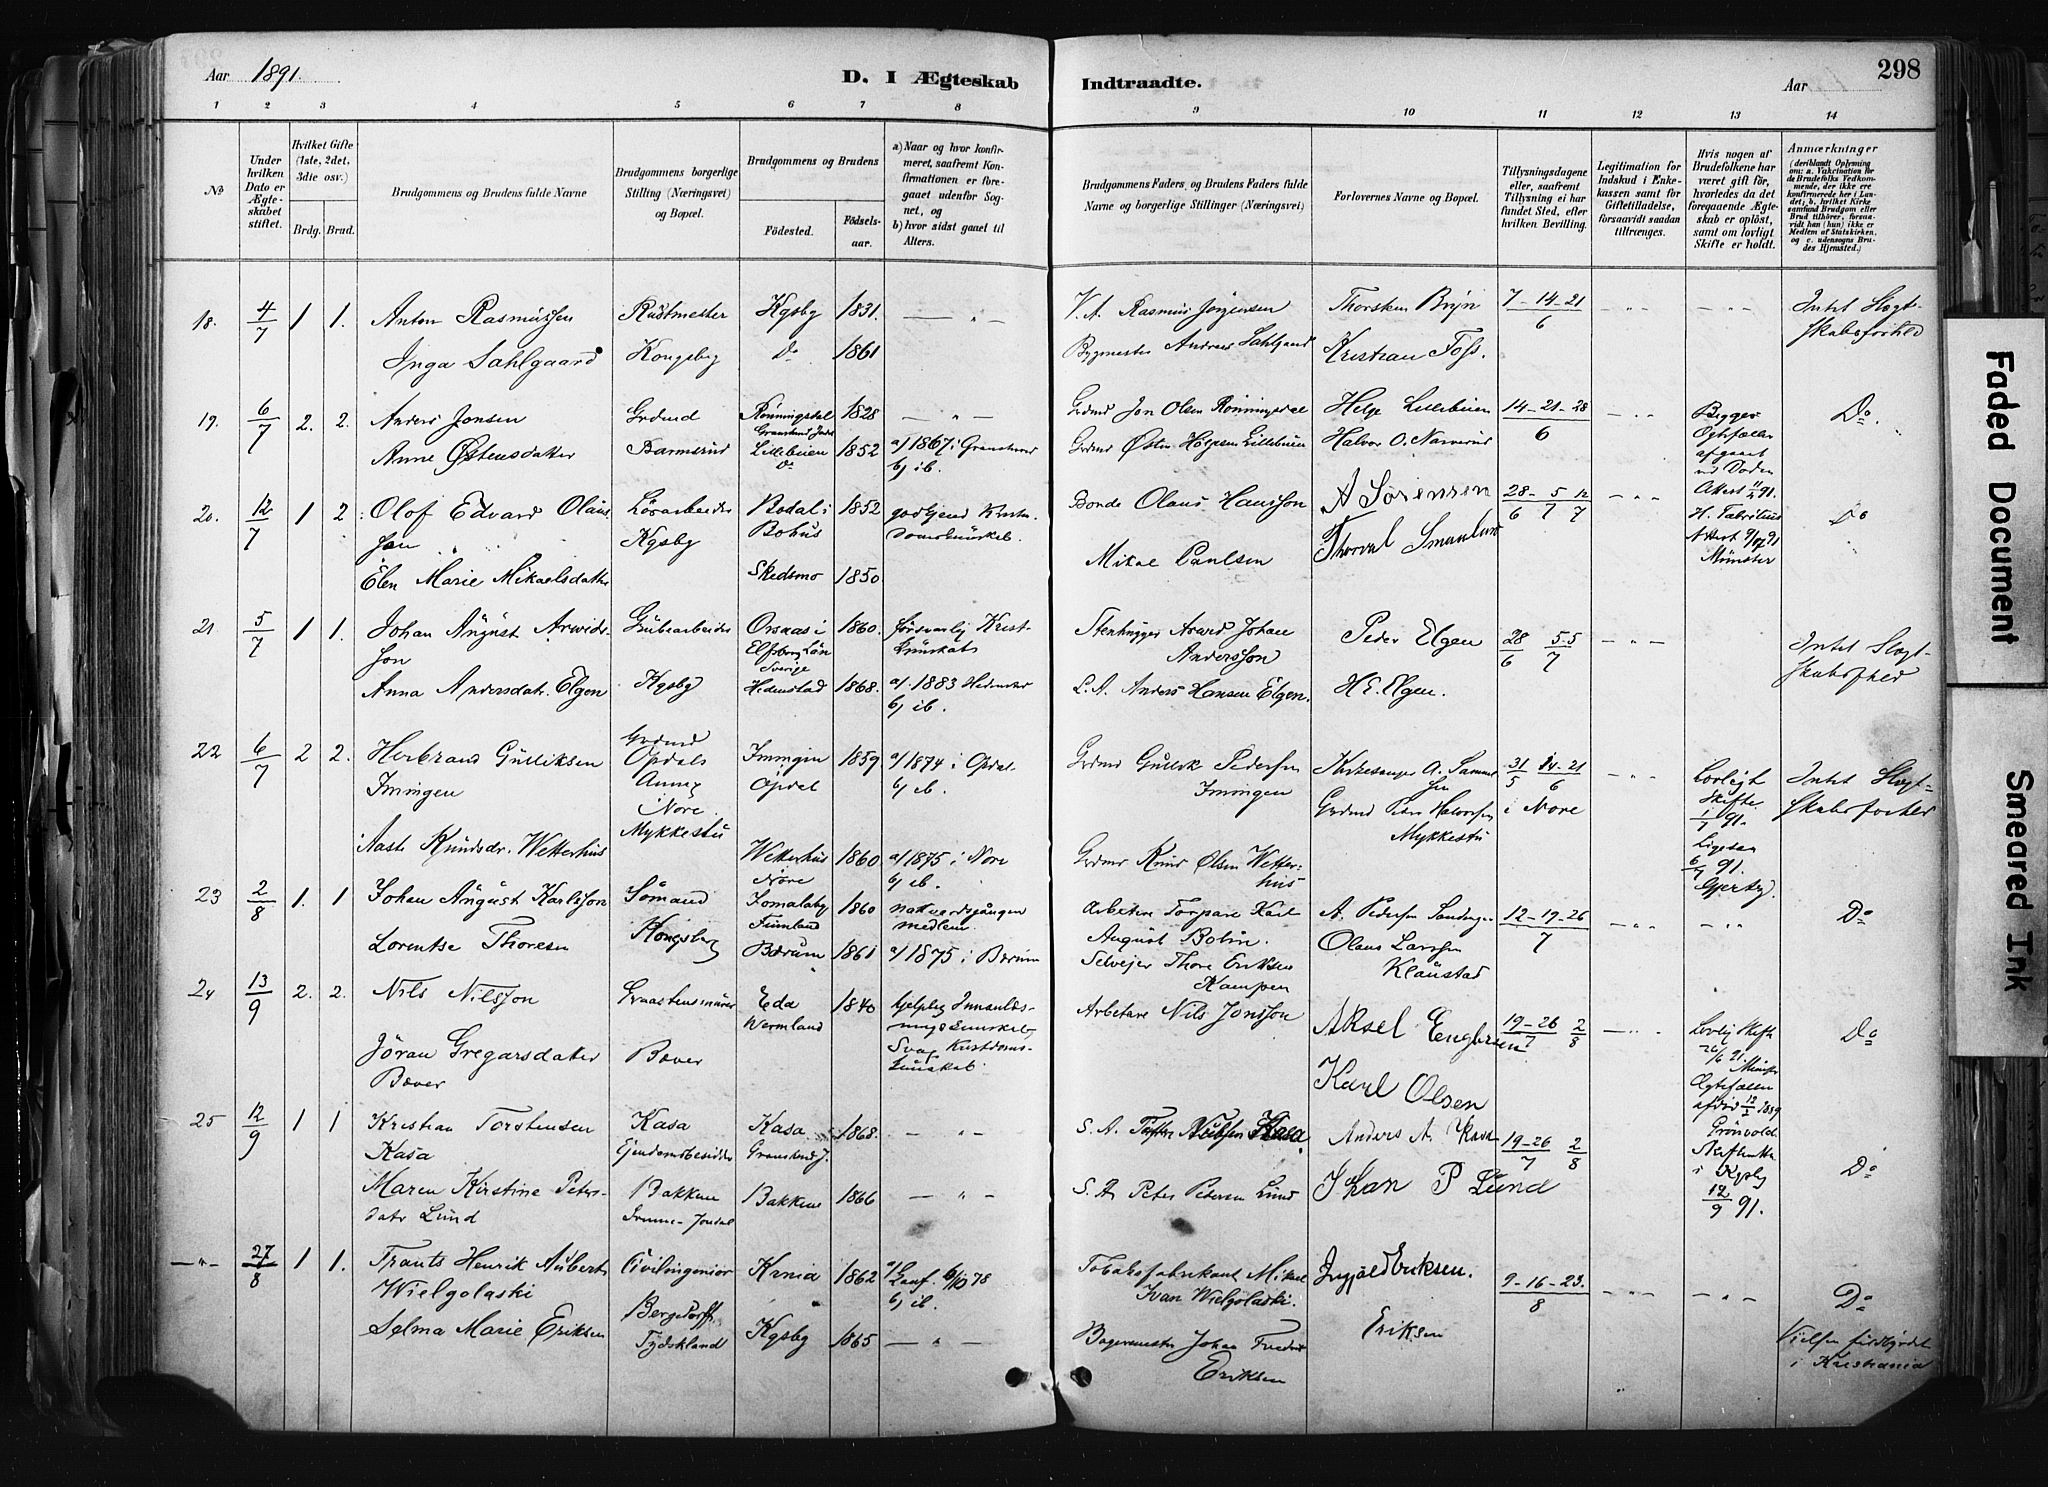 Aar 1891.
D. I Ægteskab Indtraadte.
Aar
298
1 2 3 4 5 6 7 8 9 10 11 12 13 14
No
Under hvilken Dato er Ægteskabet stiftet.
Hvilket Gifte (1ste, 2det, 3die osv.)
Brdg. Brud.
Brudgommens og Brudens fulde Navne
Brudgommens borgerlige Stilling (Næringsvei) og Bopæl.
Brudgommens og Brudens
Fødested.
Fødselsaar.
a) Naar og hvor konfirmeret, saafremt Konfirmationen er foregaaet udenfor Sognet, og
b) hvor sidst gaaet til Alters.
Brudgommens Faders, og Brudens Faders fulde Navne og borgerlige Stillinger (Næringsvei)
Forlovernes Navne og Bopæl.
Tillysningsdagene eller, saafremt Tillysning ei har fundet Sted, efter hvilken Bevilling.
Legitimation for Indskud i Enkekassen samt for Giftetilladelse, forsaavidt saadan tiltrænges.
Hvis nogen af Brudefolkene har været gift før, hvorledes da det foregaaende Ægteskab er opløst, samt om lovligt Skifte er holdt.
Anmærkninger
(deriblandt Oplysning om: a. Vakcination for de Brudefolks Vedkommende, der ikke ere konfirmerede her i Landet; b. hvilket Kirkesamfund Brudgom eller Brud tilhører, forsaavidt han (hun) ikke er Medlem af Statskirken, og c. udensogns Brudes Hjemsted.)
18. 4/7 1 1. Anton Rasmussen Rustmester Kgsby 1831. — " — V. A. Rasmus Jørgensen Thorsten Bryn 7-14-21/6 - " - - " - Intet Slægtskabsforhold
Inga Sahlgaard Kongsberg Do 1861 Bygmester Andreas Sahlgaard Kristian Foss.
19. 6/7 2. 2. Anders Jonsen Grdmd Rønningsdal 1828 — " — Grdmd Jon Olsen Rønningsdal Helge Lillebuien 14-21-28/6 - " - Begges Do.
Anne Østensdatter Barmerud Lillebuien Do 1852 a) 1867 i Gransherred b) ib. Grdmd Østen Helgesen Lillebuien Halvor O. Narverud Ægtefæller afgaaet ved Døden
20. 12/7 1 2 Olof Edvard Olausson Løsarbeider Bodal i Bohus 1852 godkjend Kristendomskunskab. Bonde Olaus Hansson A Sörensen 28/6 5/7 12/7 - " - Do
Kgsby
Elen Marie Mikaelsdatter Skedsmo 1850. Mikael Paulsen Thorval Smaalund Münster
21 5/7 1 1. Johan August Arwidsson Grubearbeider Orsaas i Elfsborg Län Sverige 1860. forsvarlig Kristkunskab Stenhugger Arwed Johan Andersson Peder Elgen 28/6 5.5/7 - " - Intet Slægtskabsfhld
Anna Andersdatr. Elgen Kgsby Hedenstad 1868. a). 1883 Hedenstad b) ib. L. A. Anders Hansen Elgen. H E. Elgen.
22 6/7 2 2. Herbrand Gulliksen Imingen Grdmd Opdals Annex i Nore. Imingen Opdal 1859 a) 1874 i Opdal b) ib. Grdmd Gullik Pedersen Imingen Kirkesanger A. 31/5 14-21/6 i Nore - " - Lovligt Skifte 91. Intet Slægtskabsforhold
Aaste Knudsdr. Wetterhus Mykkestu Wetterhus Nore 1860 a) 1875 i Nore b) ib. Grdmd Knud Olsen Wetterhus Grdmd Peter Halvorsen Mykkestu 6/7 91
23 2/8 1. 1 Johan August Karlsson Sömand Jomalaby Finnland 1860 nattvardsgången medlem. Arbetare Torpare Karl August Bolin. A. Pedersen 12-19-26/7 - " - - " - Do
Lorentse Thoresen Kongsberg Bærum 1861 a) 1875 i Bærum Selvejer Thore Eriksen Kampen Olaus Larssen Klaustad
24 13/9 2. 2. Nils Nilsson Graastensmurer Eda Wermland 1840 hjelplig Innanläsningskunskab, Svag Kristdoms-kunskab. Arbetare Nils Jonsson Aksel Engebrsen 19-26/7 2/8 - " - Lovlig Skifte 26/6 91. Münster Ægtefællen afdød 12/2 1889 Grönvold. Do
Jøran Gregarsdatter Bæver Bæver Karl Olsen
25 12/9 1 1 Kristian Torstensen Kasa Kasa Ejendomsbesidder Kasa Gransherred J. 1868. - " - S. A. Nubsen Kasa, Anders A. Kasa 19-26/7 2/8 Skifteattest i Kgsby 12/9 91. Do
Maren Kirstine Petersdatr Lund Bakken Bakken 1866 - " - S. A. Peter Petersen Lund Johan P Lund
- " - 27/8 1 1. Frants Henrik Aubert Wielgolaski Civilingeniør Krnia 1862 a) b) ib. Tobaksfabrikant Mikael Ivan Wielgolaski. Ingjald Eriksen. 9-16-23./8 - " - - " - Do
Selma Marie Eriksen Bergedorff, Tydskland Kgsby 1865 — " — Bagermester Johan Fredrik Eriksen Eriksen Vielsen fuldbyrdet i Kristiania
Faded Document
Smeared Ink